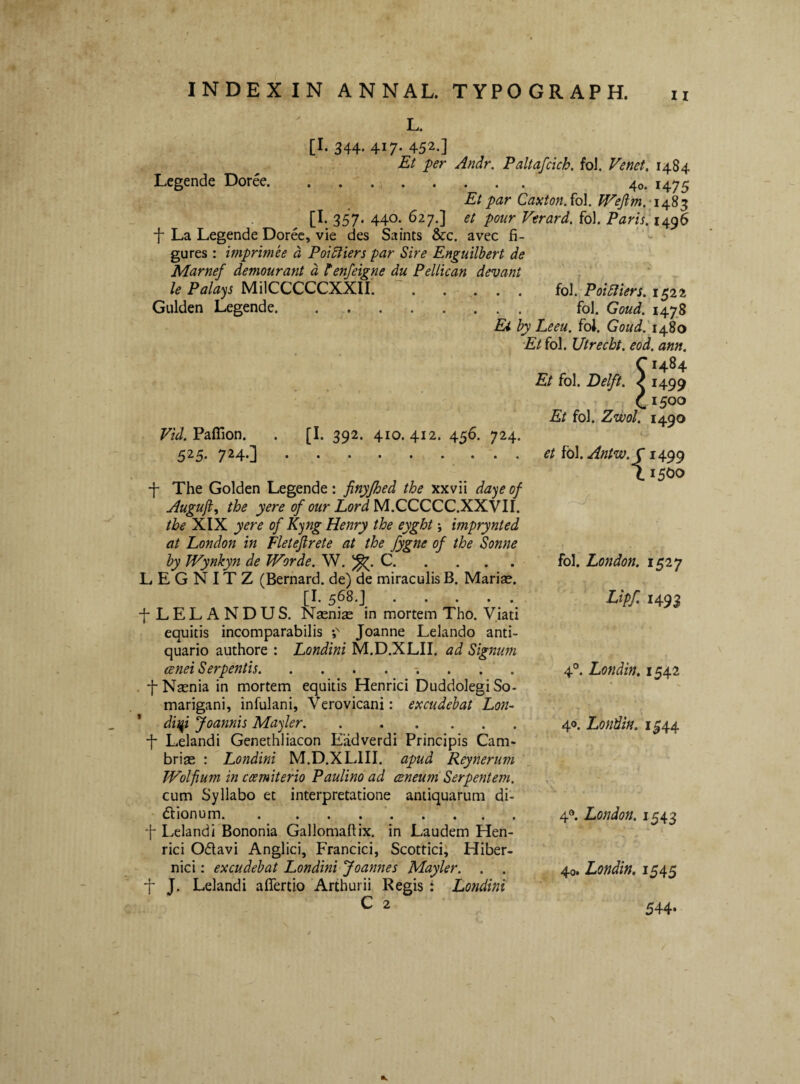 INDEX IN ANNAL. TYPOGRAPH. 11
L.
[I. 344. 417. 452.]
Et per Andr. Paltaſcich. fol. Venet. 1484
Legende Dorée. . . . . . . . . 4o. 1475
Et par Caxton. fol. Weſtm. 1483
[I. 357. 440. 627.] et pour Verard. fol. Paris. 1496
† La Legende Dorée, vie des Saints &c. avec fi-
gures : imprimée à Poictiers par Sire Enguilbert de
Marnef demourant à l'enſeigne du Pellican devant
le Palays MilCCCCCXXII. . . . . . fol. Poictiers. 1522
Gulden Legende. . . . . . . . . fol. Goud. 1478
Et by Leeu. fol. Goud. 1480
Et fol. Utrecht. eod. ann.
Et fol. Delft. { 1484
1499
1500
Et fol. Zwol. 1490
Vid. Paſſion. . [I. 392. 410. 412. 456. 724.
525. 724.] . . . . . . . . . et fol. Antw. { 1499
1500
† The Golden Legende : finyſhed the xxvii daye of
Auguſt, the yere of our Lord M.CCCCC.XXVII.
the XIX yere of Kyng Henry the eyght ; imprynted
at London in Fleteſtrete at the ſygne of the Sonne
by Wynkyn de Worde. W. C. . . . . fol. London. 1527
LEGNITZ (Bernard. de) de miraculis B. Mariæ.
[I. 568.] . . . . . Lipſ. 1493
† LELANDUS. Næniæ in mortem Tho. Viati
equitis incomparabilis ; Joanne Lelando anti-
quario authore : Londini M.D.XLII. ad Signum
ænei Serpentis. . . . . . . . . 4°. Londin. 1542
† Nænia in mortem equitis Henrici Duddolegi So-
marigani, inſulani, Verovicani : excudebat Lon-
dini Joannis Mayler. . . . . . . 4o. Londin. 1544
† Lelandi Genethliacon Eädverdi Principis Cam-
briæ : Londini M.D.XLIII. apud Reynerum
Wolfium in cœmiterio Paulino ad æneum Serpentem.
cum Syllabo et interpretatione antiquarum di-
ctionum. . . . . . . . . . 4°. London. 1543
† Lelandi Bononia Gallomaſtix. in Laudem Hen-
rici Octavi Anglici, Francici, Scottici, Hiber-
nici : excudebat Londini Joannes Mayler. . . 4o. Londin. 1545
† J. Lelandi aſſertio Arthurii Regis : Londini
C 2 544.